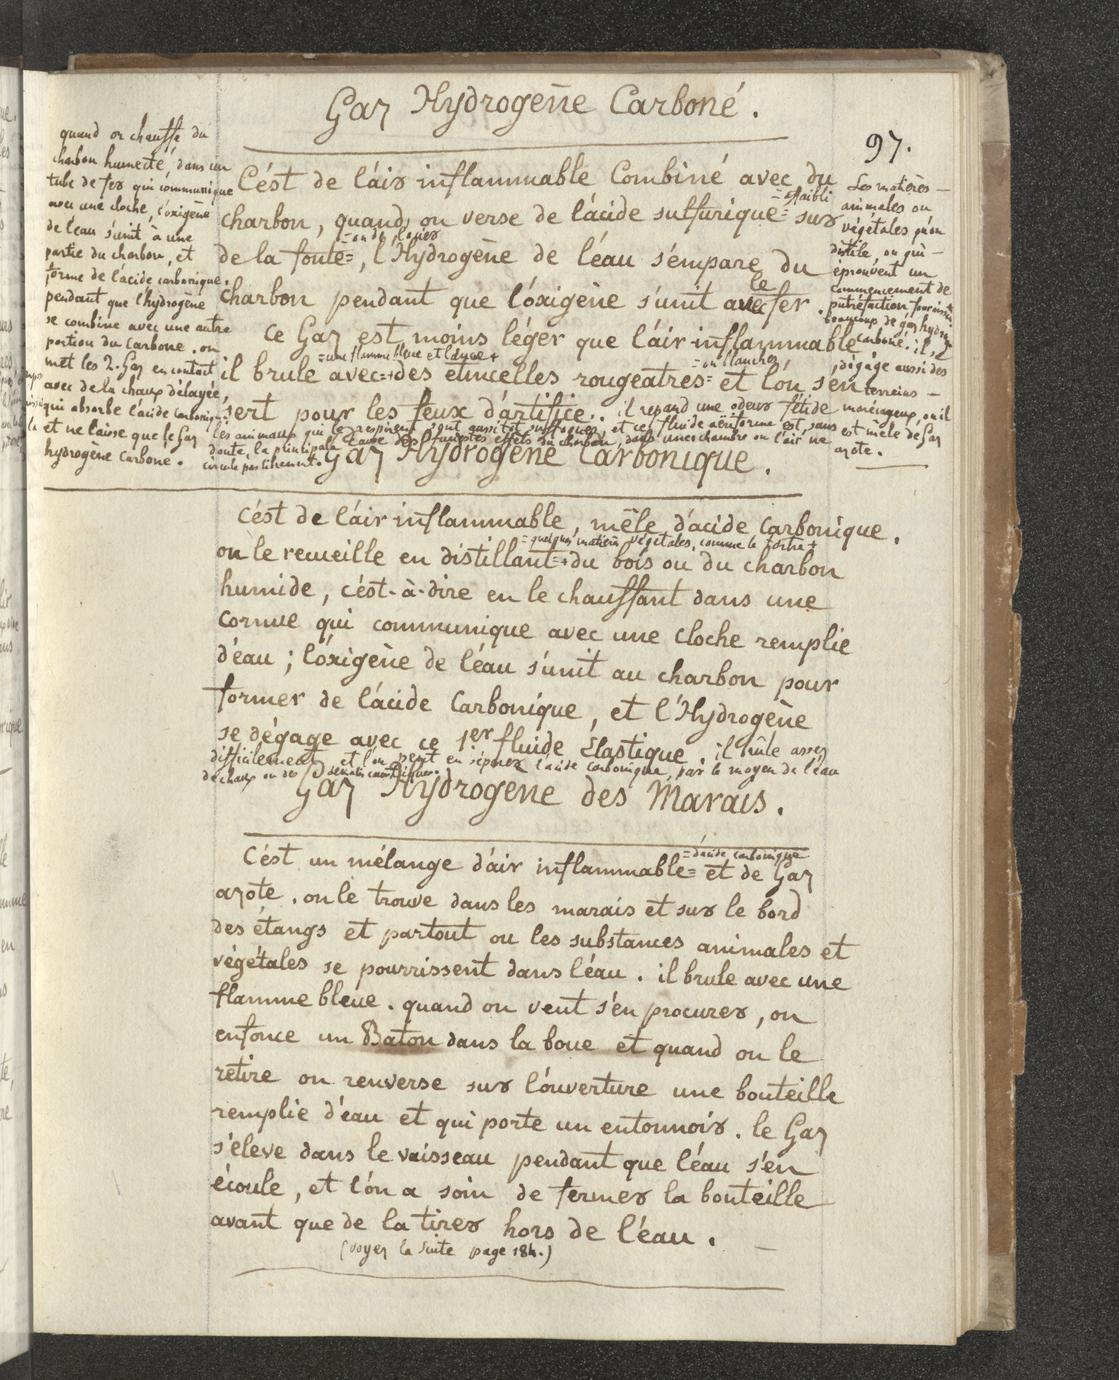 Gaz Hydrogène Carboné.
97.
quand on chauffe du
charbon humecté, dans un
tube de fer qui communique
avec une cloche, l'oxigène
de l'eau s'unit à une
partie du charbon, et
forme de l'acide carbonique.
pendant que l'hydrogène
se combine avec une autre
portion du Carbone. on
met les 2. Gaz en contact
avec de la chaux délayée,
qui absorbe l'acide carbonique
et ne laisse que le Gaz
hydrogène Carbone.
C'ést de l'áir inflammable Combiné avec du
=affaibli
charbon, quand on verse de l'ácide sulfurique= sur
=ou du
de la fonte=, l'Hydrogène de l'éau s'émpare du
le
charbon pendant que l'óxigène s'unit avec fer.
ce Gaz est moins léger que l'áir inflammable
=une flamme bleue et +
=ou blanches
il brule avec=+des étincelles rougeatres= et l'ón s'en
sert pour les feux d'artifice.. il repand une odeur fétide
les animaux qui le respirent sont aussitot suffoqués, et ce fluide aëriforme est, sans
doute, la principale cause des funestes effets du charbon, dans une chambre ou l'air ne
circule pas librement.
Les matières
animales ou
végétales qu'on
distile, ou qui
éprouvent un
commencement de
putréfaction fournissent
beaucoup de gaz hydro
carboné. il se
dégage aussi des
terreins
marécageux, ou il
est mêlé de Gaz
azote.
Gaz Hydrogène Carbonique.
C'ést de l'áir inflammable, mêlé d'acide Carbonique.
=quelques matières végétales, comme le tartre+
on le recueille en distillant=+du bois ou du charbon
humide, c'ést-à-dire en le chauffant dans une
Cornue qui communique avec une cloche remplie
d'éau; l'óxigène de l'éau s'unit au charbon pour
former de l'ácide Carbonique, et l'Hydrogène
se dégage avec ce 1er fluide Elastique. il brûle assez
difficilement et l'on peut en séparer l'acide carbonique, par le moyen de l'eau
de chaux ou des
Gaz Hydrogène des Marais.
=d'acide carbonique
C'ést un mélange d'áir inflammable= et de Gaz
azote. on le trouve dans les marais et sur le bord
des étangs et partout ou les substances animales et
végétales se pourrissent dans l'éau. il brule avec une
flamme bleue. quand on veut s'en procurer, on
enfonce un Baton dans la boue et quand on le
rétire on renverse sur l'óuverture une bouteille
remplie d'éau et qui porte un entonnoir. le Gaz
s'éleve dans le vaisseau pendant que l'éau s'en
écoule, et l'ón a soin de fermer la bouteille
avant que de la tirer hors de l'éau.
(voyez la suite page 184.)